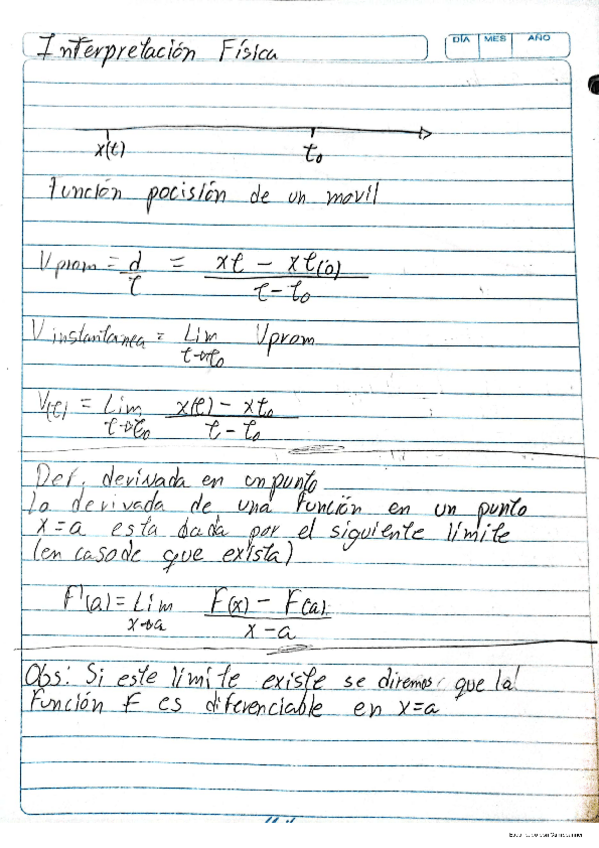 Interpretación Física
DÍA MES AÑO
x(t) t₀
Función pocisión de un movil
Vprom = d/t = xt - xt(0) / t - t₀
V instantanea = Lim t→t₀ Vprom
V(t) = Lim t→t₀ x(t) - xt₀ / t - t₀
Def. derivada en un punto
la derivada de una función en un punto
x=a esta dada por el siguiente límite
(en caso de que exista)
F'(a) = Lim x→a F(x) - F(a) / x-a
Obs: Si este límite existe se diremos que la
función F es diferenciable en x=a